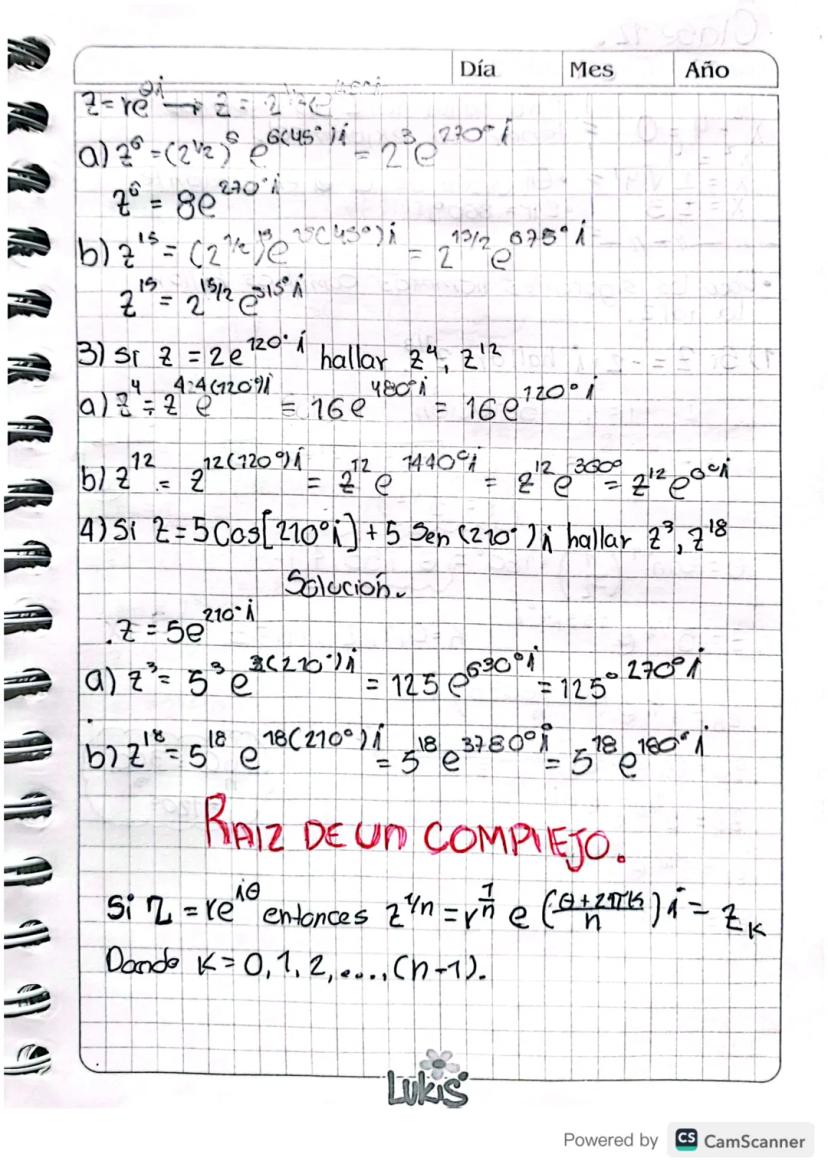 Día Mes Año
z=re^θi → z = 2^1/2 e^45°i
a) z^6 = (2^1/2)^6 e^6(45°)i = 2^3 e^270°i
z^6 = 8e^270°i
b) z^15 = (2^1/2)^15 e^15(45°)i = 2^15/2 e^675°i
z^15 = 2^15/2 e^315°i
3) si z = 2e^120°i hallar z^4, z^12
a) z^4 = z e^4·4(120°)i = 16e^480°i = 16e^120°i
b) z^12 = z^12(120°)i = z^12 e^1440°i = z^12 e^360° = z^12 e^0°i
4) Si z = 5 Cos[210°i] + 5 Sen (210°) i hallar z^3, z^18
Solución.
z = 5e^210°i
a) z^3 = 5^3 e^3(210°)i = 125 e^630°i = 125° ^270°i
b) z^18 = 5^18 e^18(210°)i = 5^18 e^3780°i = 5^18 e^180°i
RAIZ DE UN COMPLEJO.
Si z = re^iθ entonces z^1/n = r^1/n e (θ+2πk/n) i = z_K
Dando K = 0, 1, 2, ...., (n-1).
Lukis
Powered by CS CamScanner